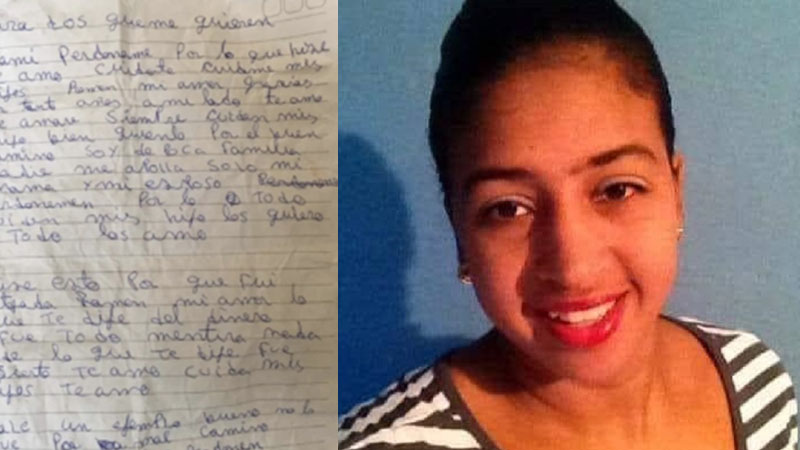 Los que me quieren
Perdoname Por lo que hise
te amo Cuidate Cuidame mis
Ramon mi amor gracias
tant años a mi lado te amo
amare Siempre Cuiden mis
bien quierolo Por el buen
camino Soy de Poca Familia
nadie me apolla Solo mi
mama y mi esposo Perdoname
Perdonemen Por lo Todo
mis hijo los quiero
a Todo los amo
esto Por que Fui
Ramon mi amor lo
que Te dije del dinero
Fue Todo mentira nada
de lo que Te dije Fue
Te amo Cuida mis
Te amo
un ejemplo bueno no lo
Por mal Camino